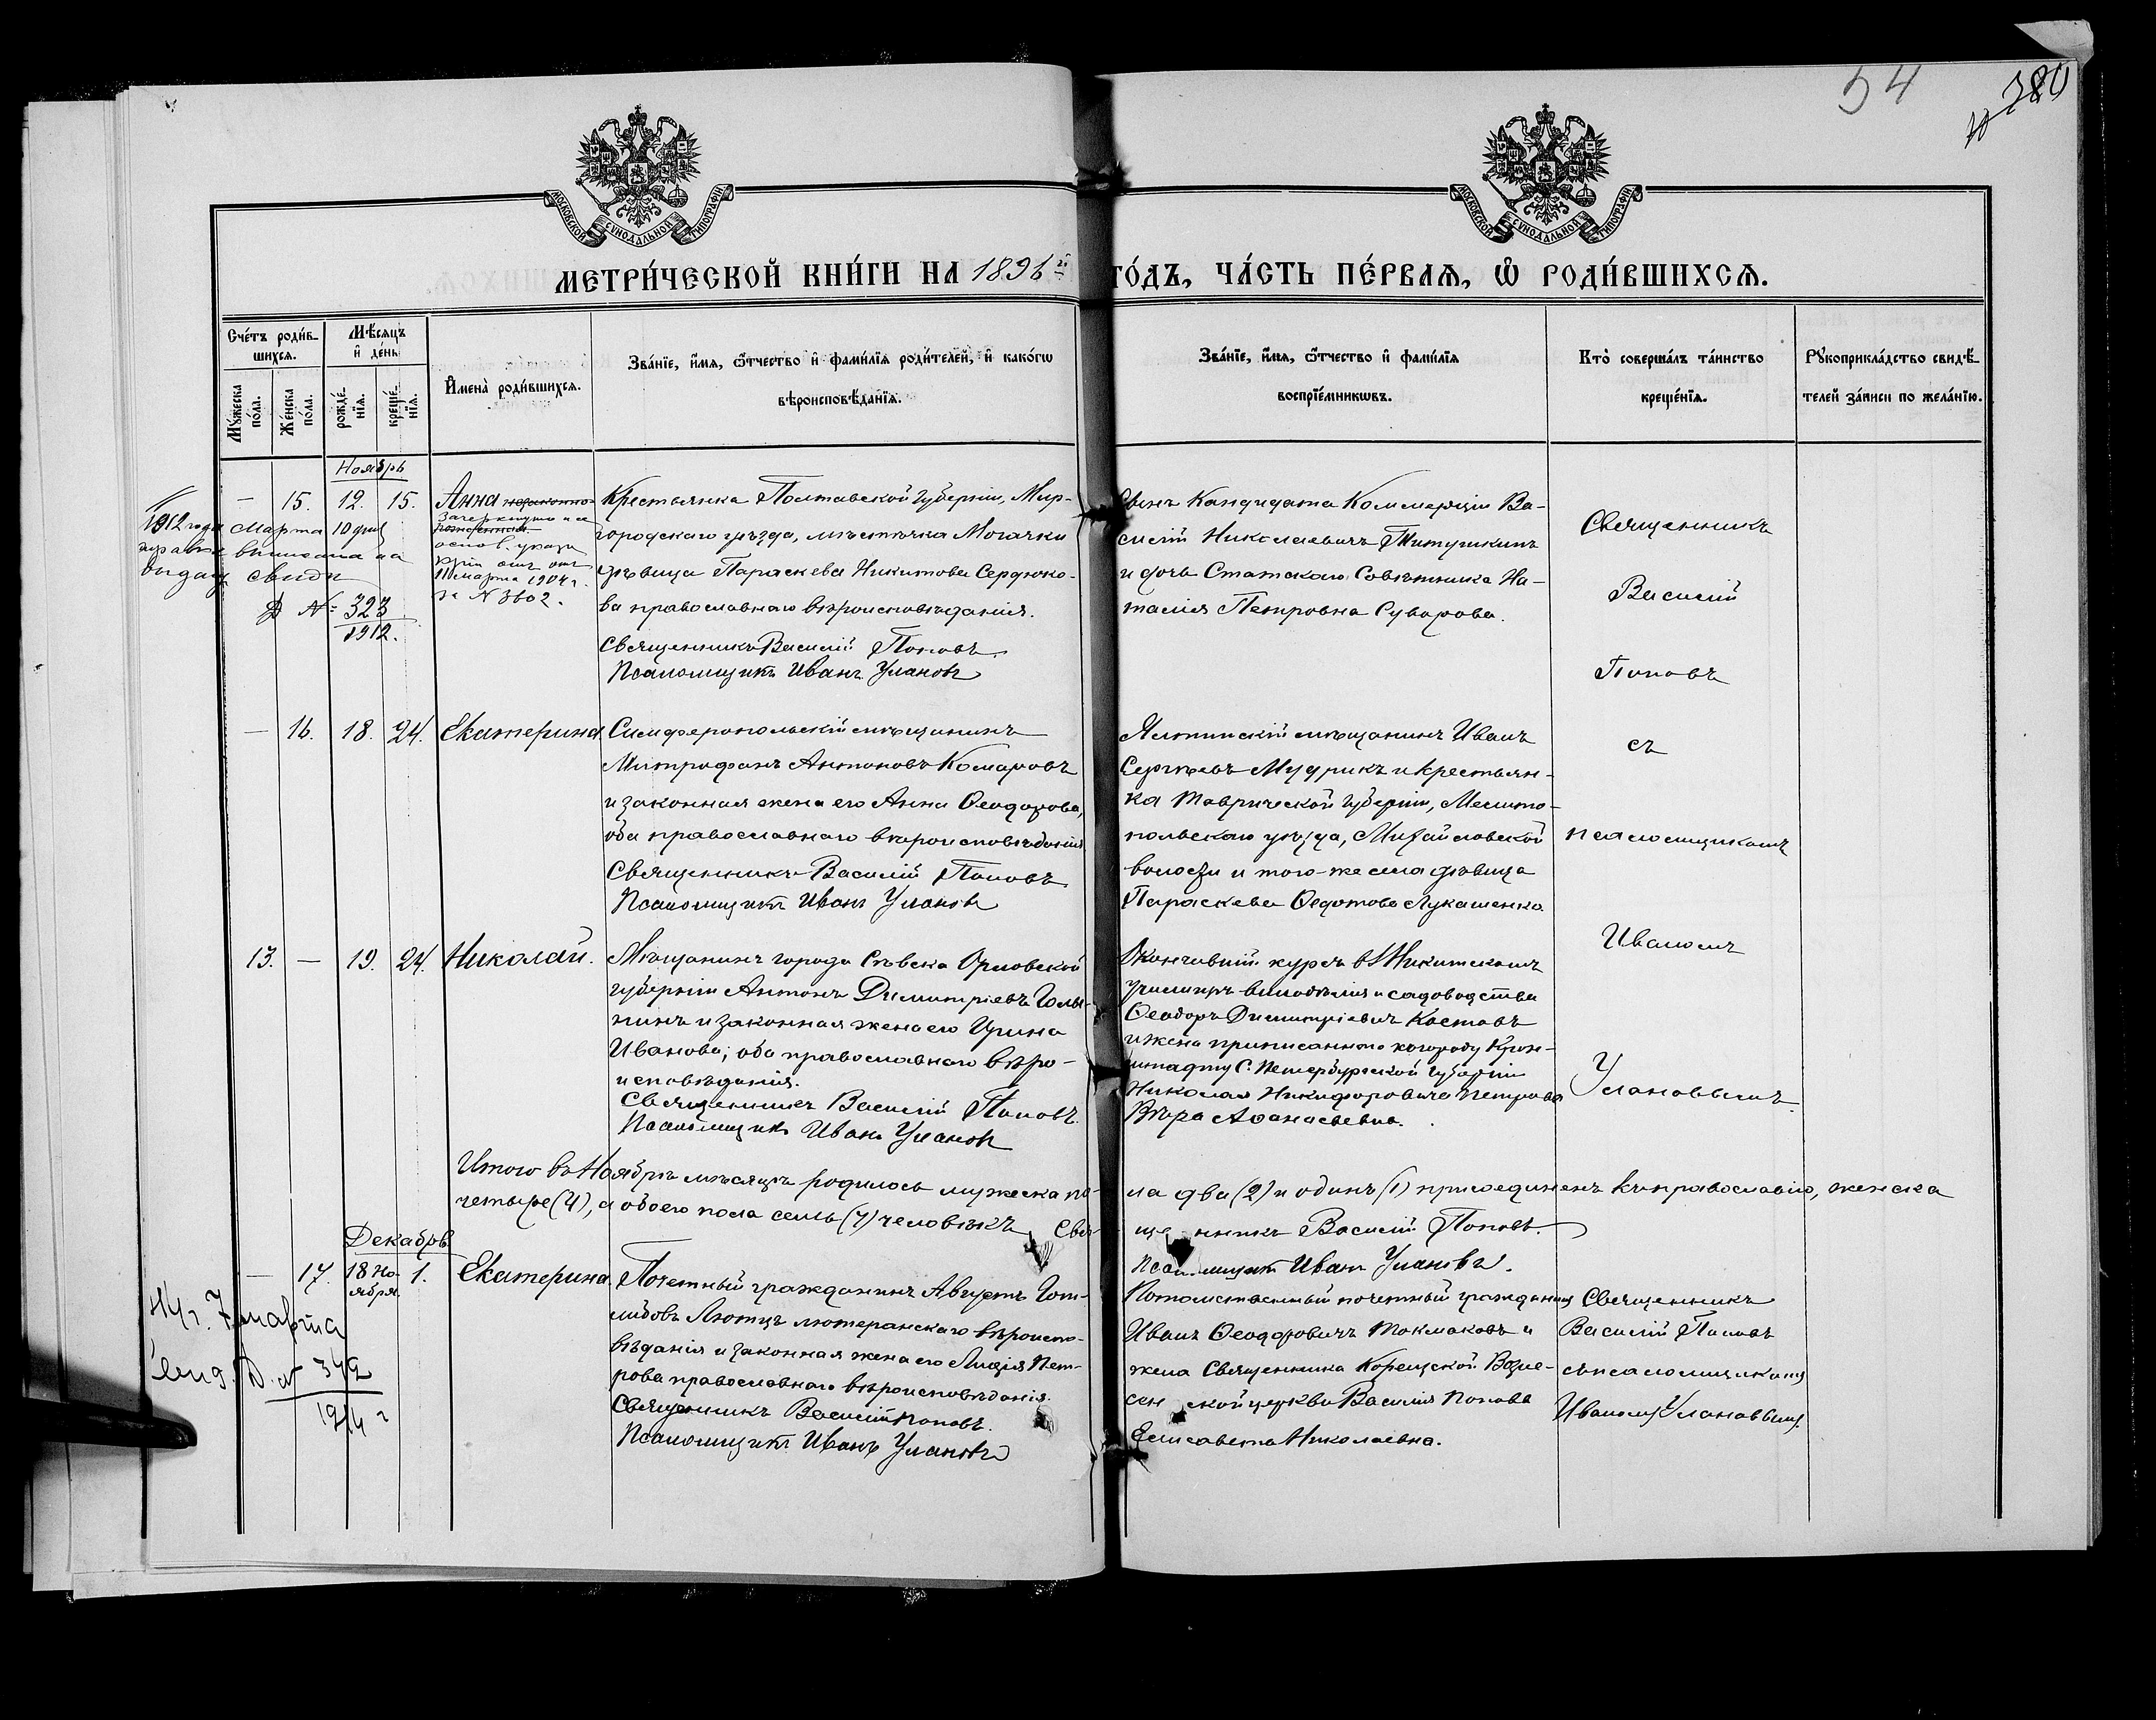 54
380
МОСКОВСКОЙ СѴНОДАЛЬНОЙ ТИПОГРАФІИ
МОСКОВСКОЙ СѴНОДАЛЬНОЙ ТИПОГРАФІИ
МЕТРИ́ЧЕСКОЙ КНИ́ГИ НА 1896й ГО́ДЪ, ЧА́СТЬ ПЕ́РВАѦ, Ѡ҆ РОДИ́ВШИХСѦ.
Сче́тъ роди́в-
шихсѧ.
Мѣ́сѧцъ
и҆ день
Мꙋ́жеска
по́ла.
Же́нска
по́ла.
рожде́-
нїѧ.
креще́-
нїѧ.
И҆мена̀ роди́вшихсѧ.
Зва́нїе, и҆́мѧ, ѻ҆́тчество и҆ фами́лїѧ роди́телей, и҆ како́гѡ
вѣроисповѣ́данїѧ.
Зва́нїе, и҆́мѧ, ѻ҆́тчество и҆ фами́лїѧ
воспрїе́мникѡвъ.
Кто̀ соверша́лъ та́инство
креще́нїѧ.
Рꙋкоприкла́дство свидѣ́-
телей за́писи по жела́нїю.
Ноябрь
— 15. 12. 15. Анна незаконно-
рожденная
Зачеркнуто на
основ. указа
отъ
11 марта 1904 г.
за N 3602.
1912 года Марта 10 дня
выписана на
выдачу свид.
Д N= 323
1912.
Крестьянка Полтавской губерніи, Мир-
городскаго уѣзда, мѣстечка Могачки
дѣвица Параскева Никитова Сердюко-
ва православнаго вѣроисповѣданія.
Священникъ Василій Поповъ.
Псаломщикъ Иванъ Улановъ
Сынъ Кандидата Коммерціи Ва-
силій Николаевичъ Титушкинъ
и дочь Статскаго Совѣтника На-
талія Петровна Суворова.
Священникъ
Василій
Поповъ
съ
псаломщикомъ
Иваномъ
Улановымъ.
— 16. 18. 24. Екатерина
Симферопольскій мѣщанинъ
Митрофанъ Антоновъ Комаровъ
и законная жена его Анна Ѳеодорова,
оба православнаго вѣроисповѣданія
Священникъ Василій Поповъ
Псаломщикъ Иванъ Улановъ
Ялтинскій мѣщанинъ Иванъ
Сергѣевъ Мудрикъ и крестьян-
ка Таврической губерніи, Мелито-
польскаго уѣзда, Михайловской
волости и того-же села дѣвица
Параскева Ѳедотова Лукашенко.
13. — 19. 24. Николай.
Мѣщанинъ города Сѣвска Орловской
губерніи Антонъ Димитріевъ Голы-
нинъ и законная жена его Ирина
Иванова; оба православнаго вѣро-
исповѣданія.
Священникъ Василій Поповъ.
Псаломщикъ Иванъ Улановъ
Окончившій курсъ въ Никитскомъ
училищѣ винодѣлія и садоводства
Ѳеодоръ Димитріевичъ Костовъ
и жена приписаннаго къ городу Крон-
штадту С. Петербургской губерніи
Николая Никифоровича Петрова
Вѣра Аѳанасьевна.
Итого въ Ноябрѣ мѣсяцѣ родилось мужеска по-
ла два (2) и одинъ (1) присоединенъ къ православію, женска
четыре (4), а обоего пола семь (7) человѣкъ. Свя-
щенникъ Василій Поповъ.
Псаломщикъ Иванъ Улановъ.
Декабрь
— 17. 18 Но-
ября. 1. Екатерина
7 марта
выд. Д. N 342
1914 г
Почетный гражданинъ Августъ Гот-
либовъ Лютцъ лютеранскаго вѣроиспо-
вѣданія и законная жена его Лидія Пет-
рова православнаго вѣроисповѣданія.
Священникъ Василій Поповъ.
Псаломщикъ Иванъ Улановъ
Потомственный почетный гражданинъ
Иванъ Ѳеодоровичъ Токмаковъ и
жена Священника Корецской Возне-
сенской церкви Василія Попова
Елисавета Николаевна.
Священникъ
Василій Поповъ
съ псаломщикомъ
Иваномъ Улановымъ.